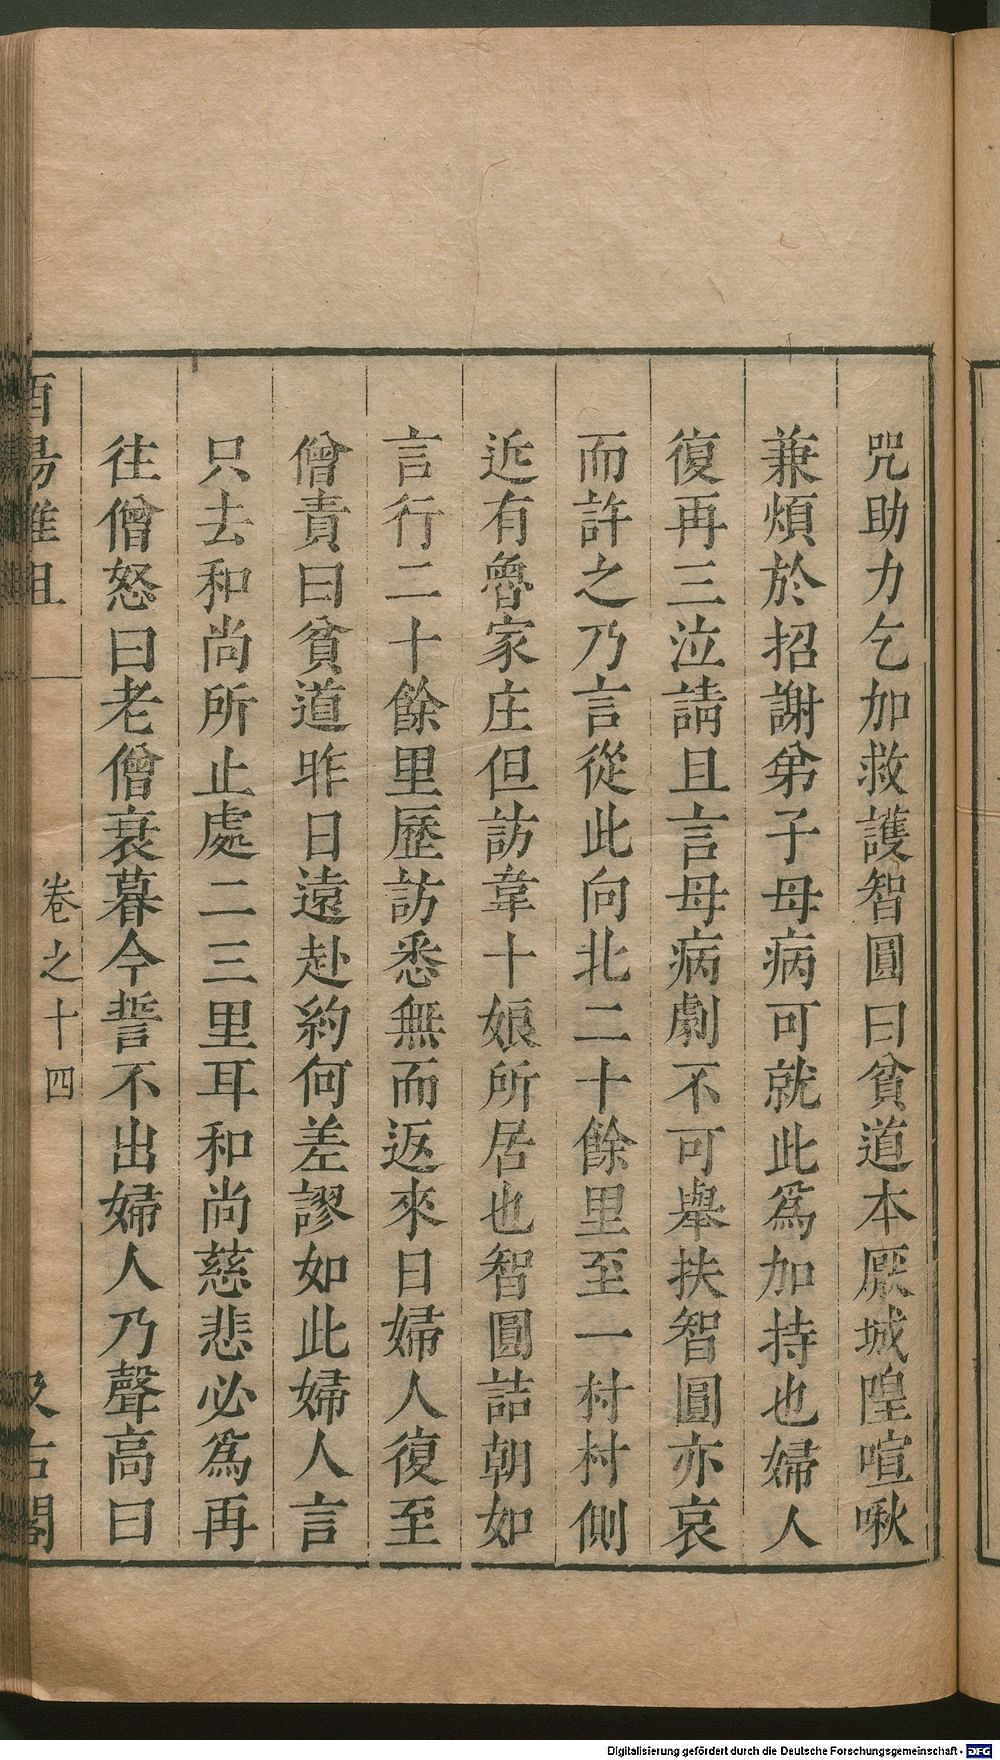 咒助力乞加救護智圓曰貧道本厭城隍喧啾
兼煩於招謝弟子母病可就此爲加持也婦人
復再三泣請且言母病劇不可舉扶智圓亦哀
而許之乃言從此向北二十餘里至一村村側
近有魯家庄但訪韋十娘所居也智圓詰朝如
言行二十餘里歷訪悉無而返來日婦人復至
僧責曰貧道昨日遠赴約何差謬如此婦人言
只去和尚所止處二三里耳和尚慈悲必爲再
往僧怒曰老僧衰暮今誓不出婦人乃聲高曰
酉陽雜俎 卷之十四 汲古閣
Digitalisierung gefördert durch die Deutsche Forschungsgemeinschaft - DFG